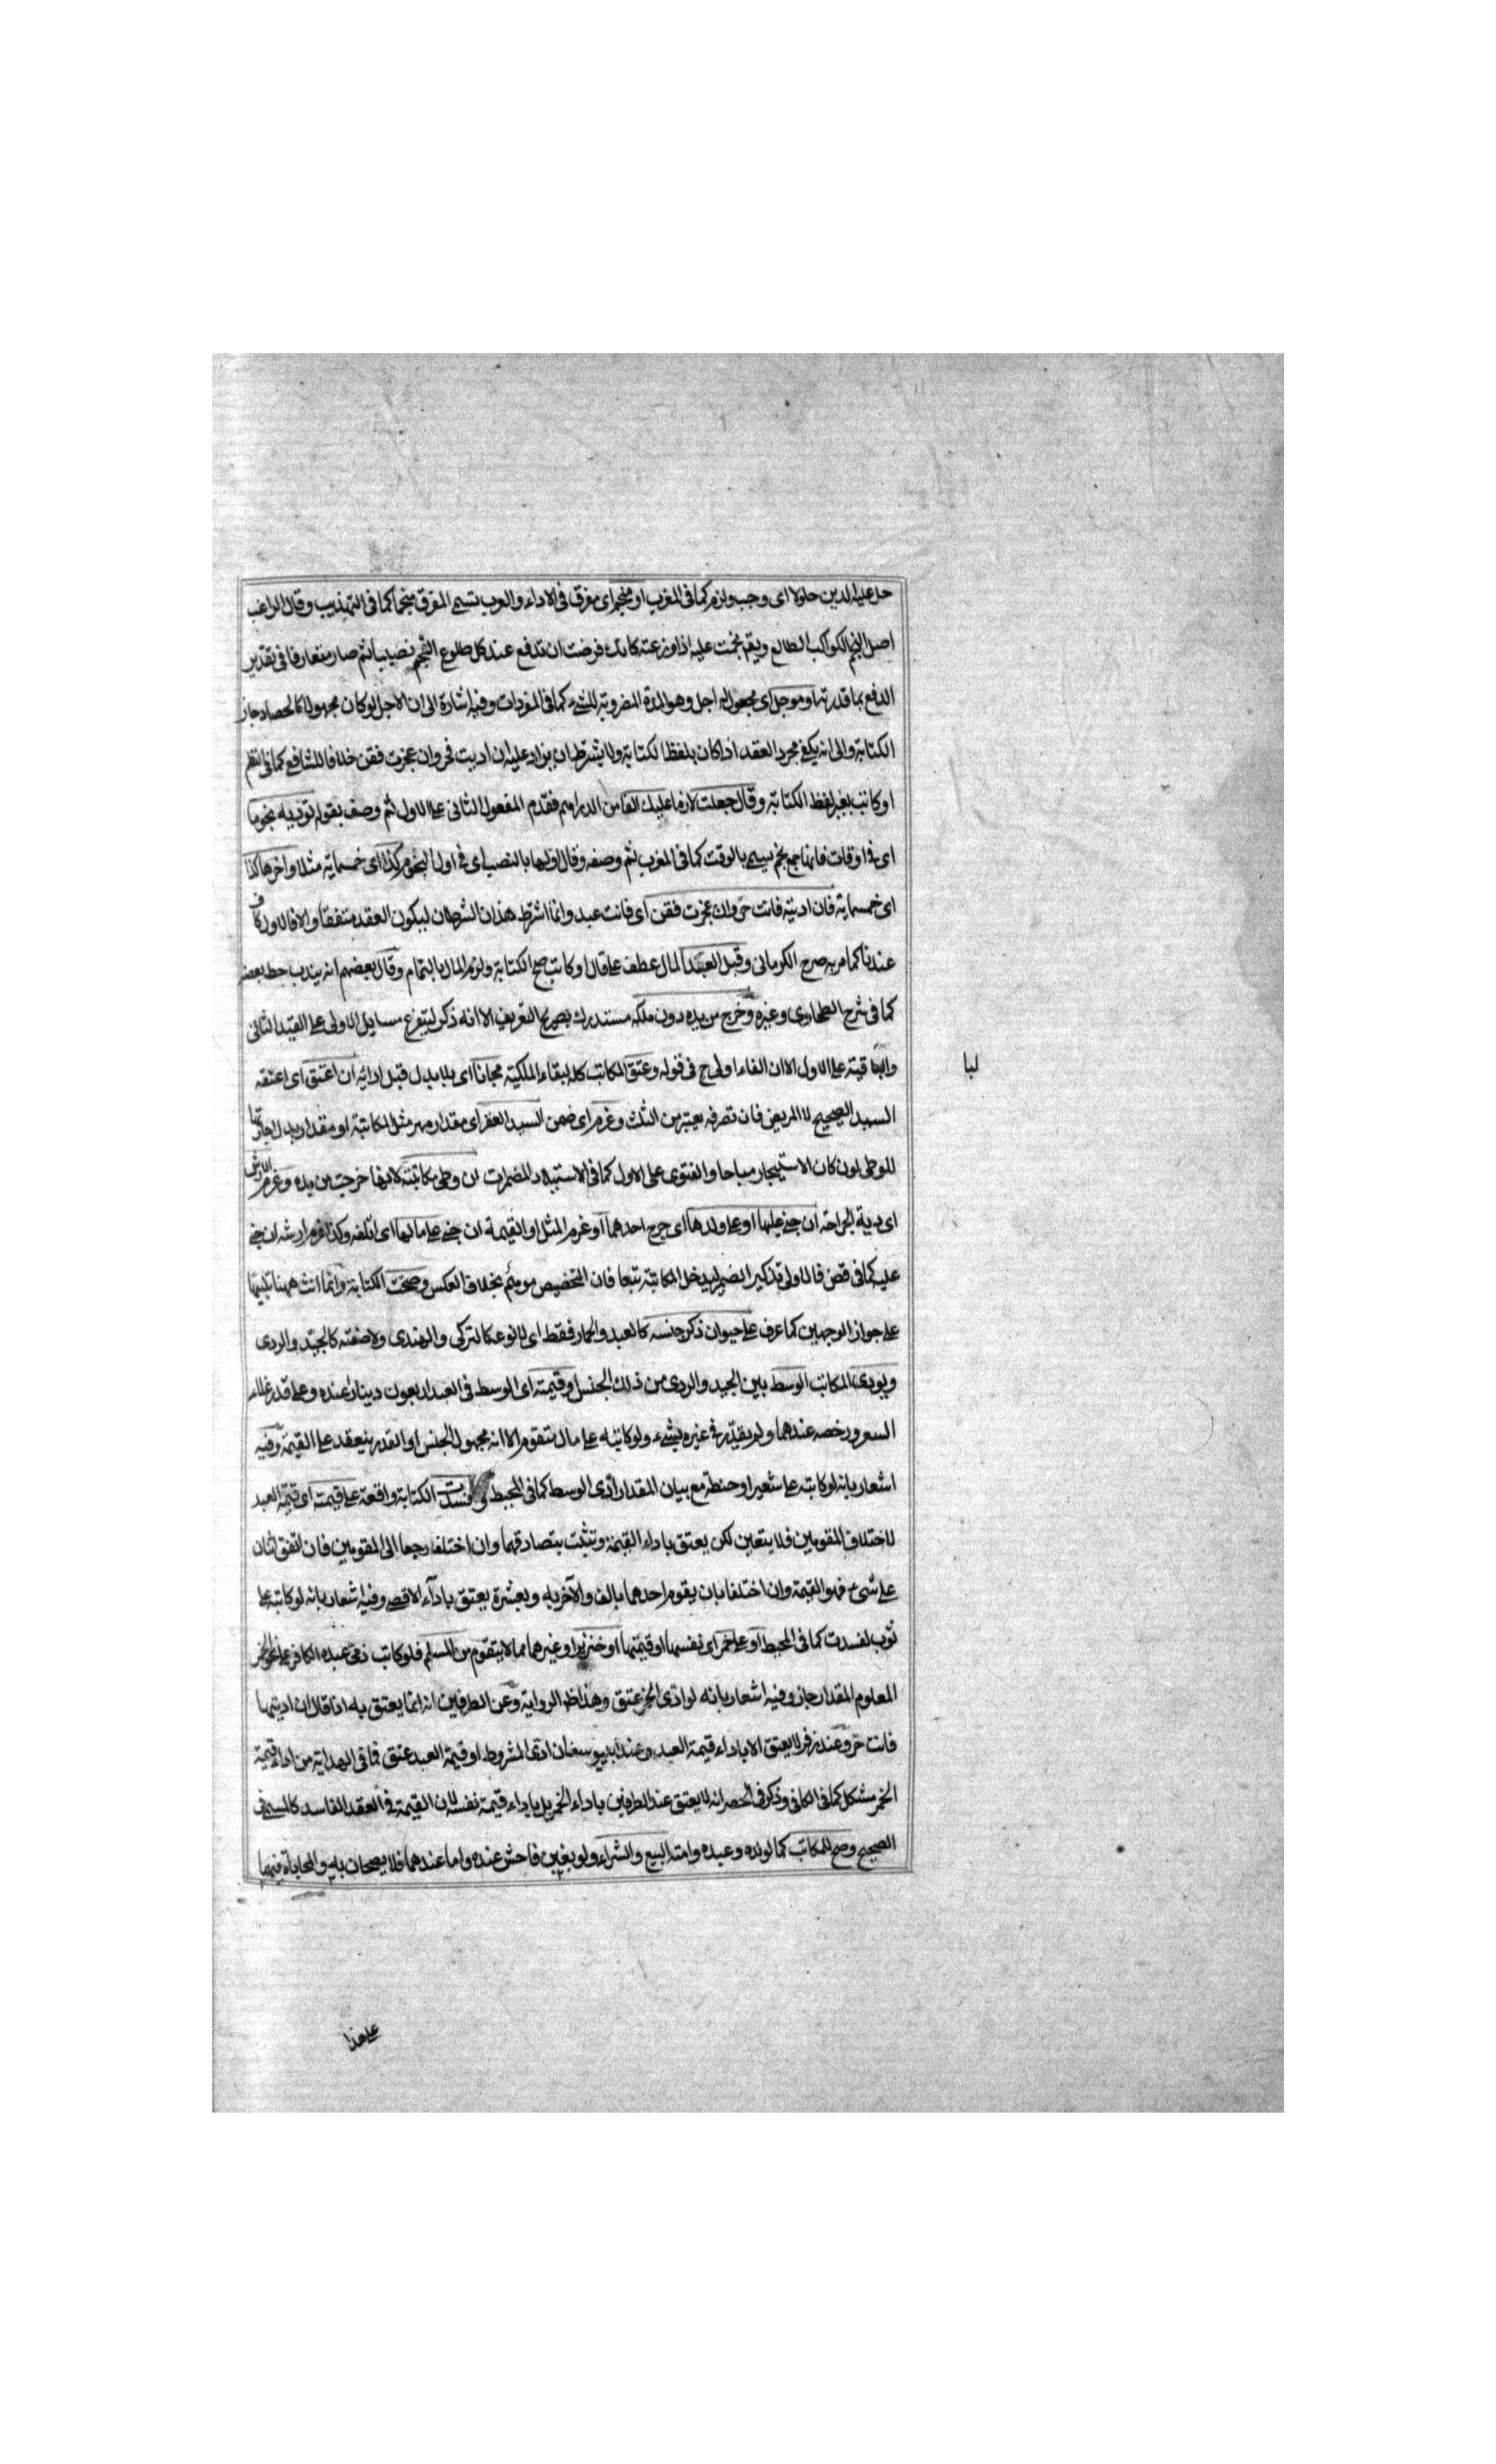 حل عليه الدين حلولا اى وجب ولزم كما فى المغرب او منجم اى مفرق فى الاداء والعرب تسمى المفرق منجما كما فى التهذيب وقال الراغب
اصل النجم الكواكب الطالع ويقم نجمت عليه اذا وزعته كانك فرضت ان تدفع عند كل طلوع النجم نصيبا ثم صار متعارفا فى تقدير
الدفع بما قدرتها وموجل اى مجعول له اجل وهو المدة المضروبة للشىء كما فى المفردات وفيه اشارة الى ان الاجل لو كان مجهولا كالحصاد جاز
الكتابة والى انه يكفى مجرد العقد اذا كان بلفظ الكتابة ولا يشترط ان يزاد عليه ان اديت فحر وان عجزت فقن خلافا للشافعى كما فى النظم
او كاتب بغير لفظ الكتابة وقال جعلت لازما عليك الفا من الدراهم فقدم المفعول الثانى على الاول ثم وصف بقوله توديه نجوما
اى فى اوقات فانها جمع نجم سمى بالوقت كما فى المغرب ثم وصفه وقال اولها بالنصب اى فى اول النجوم كذا اى خمسماية مثلا واخرها كذا
اى خمسماية فان اديته فانت حر وان عجزت فقن اى فانت عبد وانما اشترط هذان الشرطان ليكون العقد متفقا والا فالاول كاف
عندنا كما مر به صرح الكرمانى وقبل العبد المال عطف على قال او كاتب صح الكتابة ولزم المال بالتمام وقال بعضهم انه يندب حط بعضه
كما فى شرح الطحاوى وغيره وخرج من يده دون ملكه مستدرك بصريح التعريف الا انه ذكر ليتفرع مسايل الاولى على القيد الثانى
والباقية على الاول الا ان الفاء اولى ح فى قوله وعتق المكاتب كله لبقاء الملكية مجانا اى بلا بدل قبل ادائه ان اعتق اى اعتقه
لبا
السيد الصحيح لا المريض فان تصرفه يعتبر من الثلث وغرم اى ضمن السيد العقر اى مقدار مهر مثل المكاتبة او مقدار بدل اجارتها
للوطى لو كان الاستيجار مباحا والفتوى على الاول كما فى الاستيلاد المضمرات ان وطى مكاتبته لانها خرجت من يده وغرم الارش
اى دية الجراحة ان جنى عليها او على ولدها اى جرح احدهما او غرم المثل او القيمة ان جنى على مالها اى اتلفه وكذا غرم ارشه ان جنى
عليه كما فى قض فالاولى تذكير الضمير ليدخل المكاتبة تبعا فان التخصيص موهم بخلاف العكس وصحت الكتابة وانما انث ههنا تنبيها
على جواز الوجهين كما عرف على حيوان ذكر جنسه كالعبد والحمار فقط اى لا نوعه كالتركى والهندى ولا صفته كالجيد والردى
ويودى المكاتب الوسط بين الجيد والردى من ذلك الجنس او قيمته اى الوسط فى العبد اربعون دينارا عنده وعلى قدر غلاء
السعر ورخصه عندهما ولم يقدر فى غيره بشىء ولو كاتبه على مال متقوم الا انه مجهول الجنس او القدر ينعقد على القيمة وفيه
اشعار بانه لو كاتبه على شعير او حنطة مع بيان المقدار ادى الوسط كما فى المحيط وفسدت الكتابة واقعة على قيمته اى قيمة العبد
لاختلاف المقومين فلا يتعين لكن يعتق باداء القيمة وتثبت بتصادقهما وان اختلفا رجعا الى المقومين فان اتفق اثنان
على شىء فهو القيمة وان اختلفا بان يقوم احدهما بالف والآخر به وبعشرة يعتق باداء الاقصى وفيه اشعار بانه لو كاتبه على
ثوب لفسدت كما فى المحيط او على خمر اى نفسها او قيمتها او خنزير او غيرهما مما لا يتقوم من المسلم فلو كاتب ذمى عبده الكافر على نحو الخمر
المعلوم المقدار جاز وفيه اشعار بانه لو ادى الخمر عتق وهذا ظ الرواية وعن الطرفين انه انما يعتق به اذا قال ان اديتها
فانت حر وعند زفر لا يعتق الا باداء قيمة العبد وعند ابى يوسف ان ادى المشروط او قيمة العبد عتق فما فى الهداية من اداء قيمة
الخمر مشكل كما فى الكافى وذكر فى الحصر انه لا يعتق عند الطرفين باداء الخمر بل باداء قيمة نفسه لان القيمة فى العقد الفاسد كالمسمى فى
الصحيح وصح للمكاتب كما لولده وعبده وامته البيع والشراء ولو بغبن فاحش عنده واما عندهما فلا يصحان به والمحاباة فيهما
على هذا